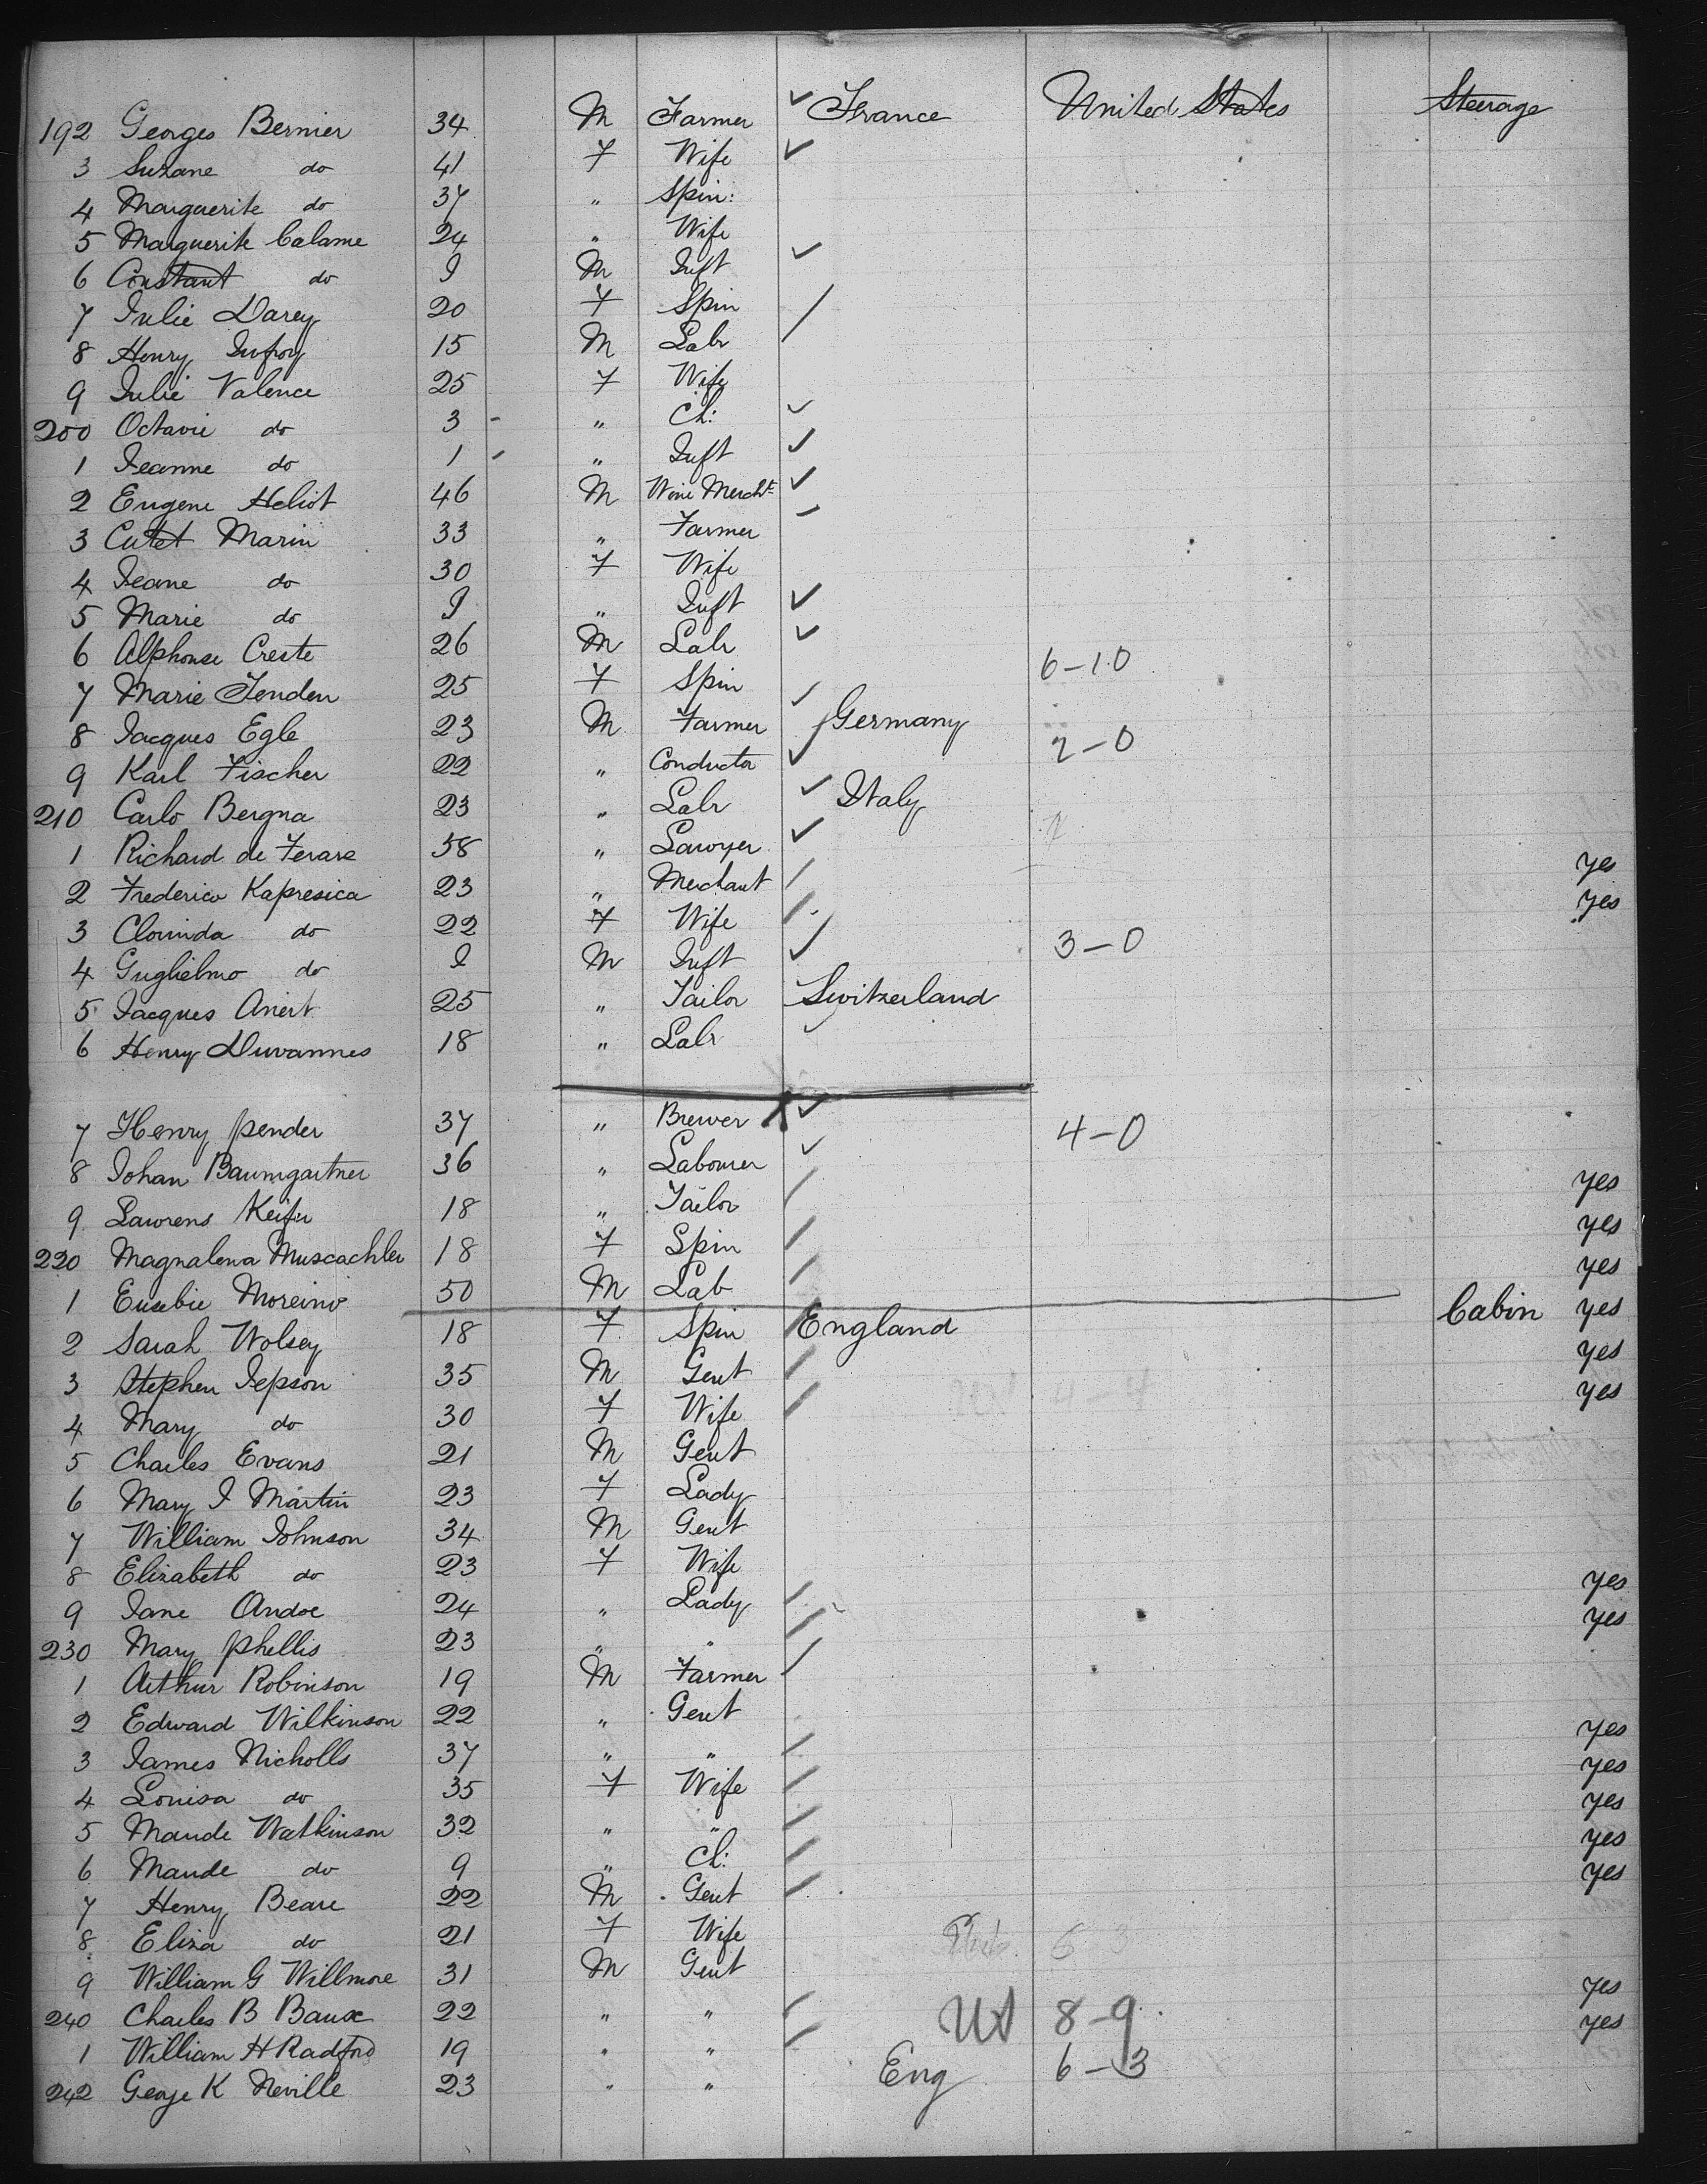 192 Georges Bernier 34 M Farmer ✓ France United States Steerage
3 Suzane do 41 F Wife ✓
4 Marguerite do 37 " Spin:
5 Marguerite Calame 24 " Wife
6 Constant do I M Inft ✓
7 Julie Darey 20 F Spin /
8 Henry Dufroy 15 M Labr
9 Julie Valence 25 F Wife
200 Octavie do 3 - " Ch: ✓
1 Jeanne do 1 - " Inft ✓
2 Eugene Heliot 46 M Wine Mercht ✓
3 Cutet Marin 33 " Farmer
4 Jeane do 30 F Wife
5 Marie do I " Inft ✓
6 Alphonse Creste 26 M Labr ✓ 6-10
7 Marie Jenden 25 F Spin ✓
8 Jacques Egle 23 M Farmer Germany 2-0
9 Karl Fischer 22 " Conductor ✓
210 Carlo Bergna 23 " Labr ✓ Italy
1 Richard de Ferare 58 " Lawyer ✓ yes
2 Frederico Kapresica 23 " Merchant / yes
3 Clorinda do 22 F Wife / 3-0
4 Guglielmo do I M Inft ✓
5 Jacques Anert 25 " Tailor Switzerland
6 Henry Duvannes 18 " Labr ✓
7 Henry Pender 37 " Brewer X ✓ 4-0
8 Johan Baumgartner 36 " Labourer ✓ yes
9 Laurens Keifer 18 " Tailor / yes
220 Magnalena Muscachler 18 F Spin / yes
1 Eusebie Moreino 50 M Lab / Cabin yes
2 Sarah Wolsey 18 F Spin / England yes
3 Stephen Jepson 35 M Gent / yes
4 Mary do 30 F Wife /
5 Charles Evans 21 M Gent
6 Mary J Martin 23 F Lady
7 William Johnson 34 M Gent
8 Elizabeth do 23 F Wife yes
9 Jane Andoe 24 " Lady / yes
230 Mary Phellis 23 " " /
1 Arthur Robinson 19 M Farmer /
2 Edward Wilkinson 22 " Gent yes
3 James Nicholls 37 " " / yes
4 Louisa do 35 F Wife / yes
5 Maude Watkinson 32 " " / yes
6 Maude do 9 " Ch: / yes
7 Henry Beare 22 M Gent /
8 Eliza do 21 F Wife 6 3
9 William G Willmore 31 M Gent yes
240 Charles B Bause 22 " " / US 8-9 yes
1 William H Radford 19 " " / Eng 6-3
242 George K Neville 23 " "